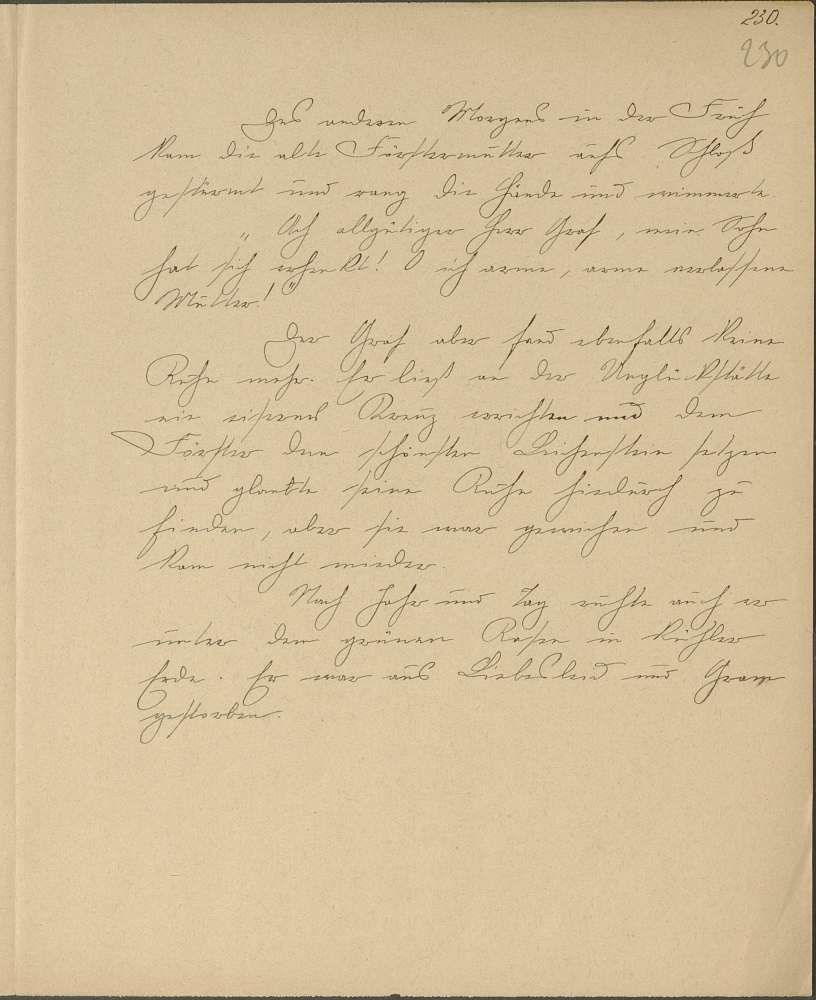 230.
230
Des anderen Morgens in der Früh
kam die alte Förstermutter aufs Schloß
gestürmt und rang die Hände und wimmerte.
„Ach allgütiger Herr Graf, mein Sohn
hat sich erhenkt! O ich arme, arme verlassene
Mutter!"
Der Graf aber fand ebenfalls keine
Ruhe mehr. Er ließ an der Unglückstätte
ein eisernes Kreuz errichten und dem
Förster den schönsten Leichenstein setzen
und glaubte seine Ruhe hiedurch zu
finden, aber sie war gewichen und
kam nicht wieder.
Nach Jahr und Tag ruhte auch er
unter dem grünen Rasen in kühler
Erde. Er war aus Liebesleid und Gram
gestorben.